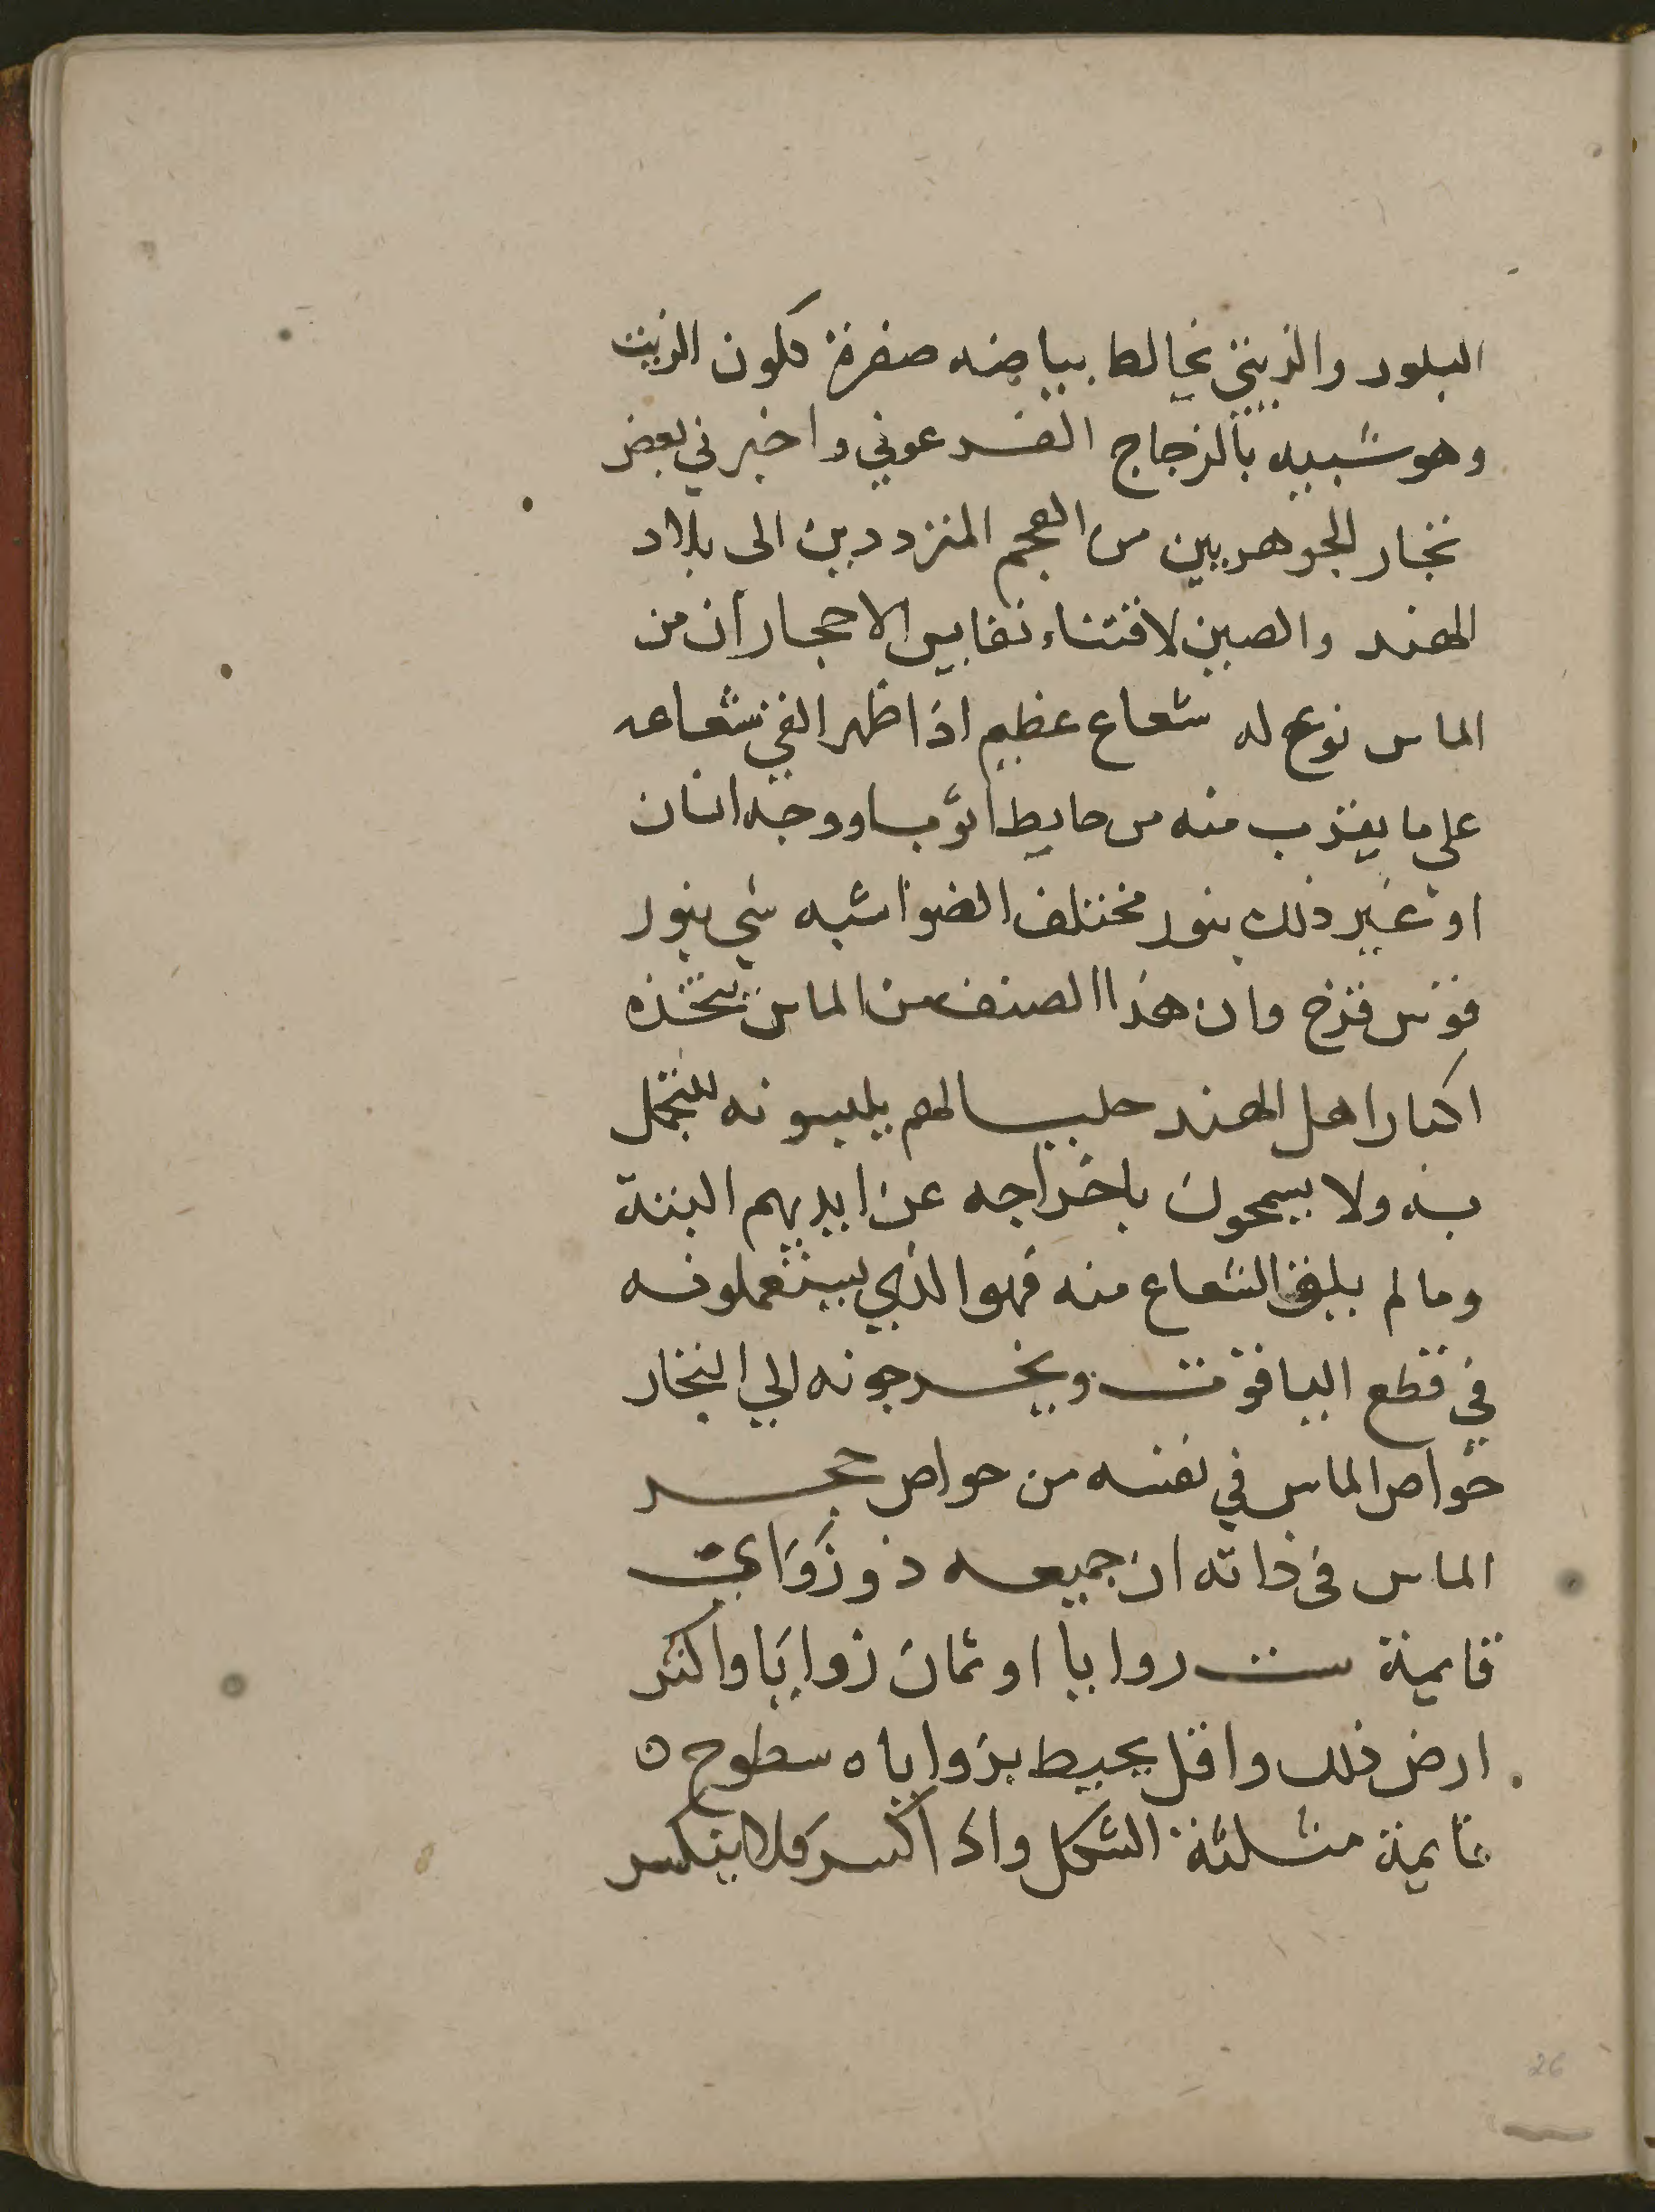 البلور والزيتي يخالط بياضه صفرة كلون الزيت
وهو شبيه بالزجاج الفرعوني واخبرني بعض
تجار الجوهريين من العجم المترددين الى بلاد
الهند والصين لاقتناء نفايس الاحجار ان من
الماس نوع له شعاع عظيم اذا ظهر القي شعاعه
علي ما يقرب منه من حايط اوثوب او وجه انسان
او غير ذلك بنور مختلف الضوا شبه شي بنور
قوس قزح وان هذا الصنف من الماس تتخذه
اكبار اهل الهند حليا لهم يلبسونه للتجمل
به ولا يسمحون باخراجه عن ايديهم البتة
وما لم يلق الشعاع منه فهو الذي يستعملونه
في قطع الياقوت ويخرجونه الي التجار
خواص الماس في نفسه من خواص حجر
الماس في ذاته ان جميعه ذو زَوَاي
قايمة ست زوايا او ثمان زوايا واكثر
ارض ذلك واقل يحيط بزواياه سطوح ه
قايمة مثلثة الشكل واذا اكسر فلا ينكسر
26